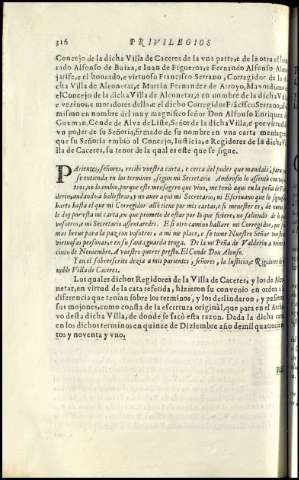 316 PRIVILEGIOS
Concejo de la dicha Villa de Caceres de la vna parte, è de la otra el
rado Alfonso de Buiza, e Iuan de Figueroa, e Fernando Alfonso
jarife, e el honrado, e virtuoso Francisco Serrano, Corregidor de la
cha Villa de Alconetar, e Martin Fernandez de Arroyo, Mayordomo
el Concejo de la dicha Villa de Alconetar, e en nombre de la dicha Villa
e vezinos, e moradores della: e el dicho Corregidor Francisco Serrano,
mismo en nombre del muy magnifico señor Don Alfonso Enriquez
Guzman, Conde de Alva de Liste, Señor de la dicha Villa, e por virtud
vn poder de su Señoria, firmado de su nombre en vna carta mensagera
que su Señoria embiò al Concejo, Iusticia, e Regidores de la dicha
lla de Caceres, su tenor de la qual es este que se sigue.
Parientes, señores, recibì vuestra carta, e cerca del poder que mandais, para
se entienda en los terminos, segun mi Secretario Ambrosio lo assentò con
tros, no lo embio, porque este mensagero que vino, me tomò aqui en la peña de
derino, andando à ballestear, y no aver aqui mi Secretario, ni Escrivano que lo
harto basta el que mi Corregidor allì tiene por mis cartas, e su menester, de
te doy por esta mi carta, en que prometo de estar por lo que se hiziere, no saliendo de lo
vosotros, e mi Secretario assentardes.
mas llevar para la paz con vosotros, e à mi me place, e ponre Nuestro Señor
virtuosas personas, e en su santa guarda tenga. De la mi Peña de Valdorin, à
cinco de Noviembre. A vuestro querer presto. El Conde Don Alonso.
Y en el sobrescrito dezia à mis parientes, señores, la Iusticia, e Regidores
noble Villa de Caceres.
Los quales dichos Regidores de la Villa de Caceres, y los de
netar, en virtud de la carta referida, hizieron su convenio en orden à
diferencia que tenian sobre los terminos, y los deslindaron, y pusieron
sus mojones, como consta de la escritura original, que para en el
vo desta dicha Villa, de donde se sacò esta razon. Dada la dicha
en los dichos terminos en quinze de Diziembre año de mil quatrocien-
tos y noventa y vno.